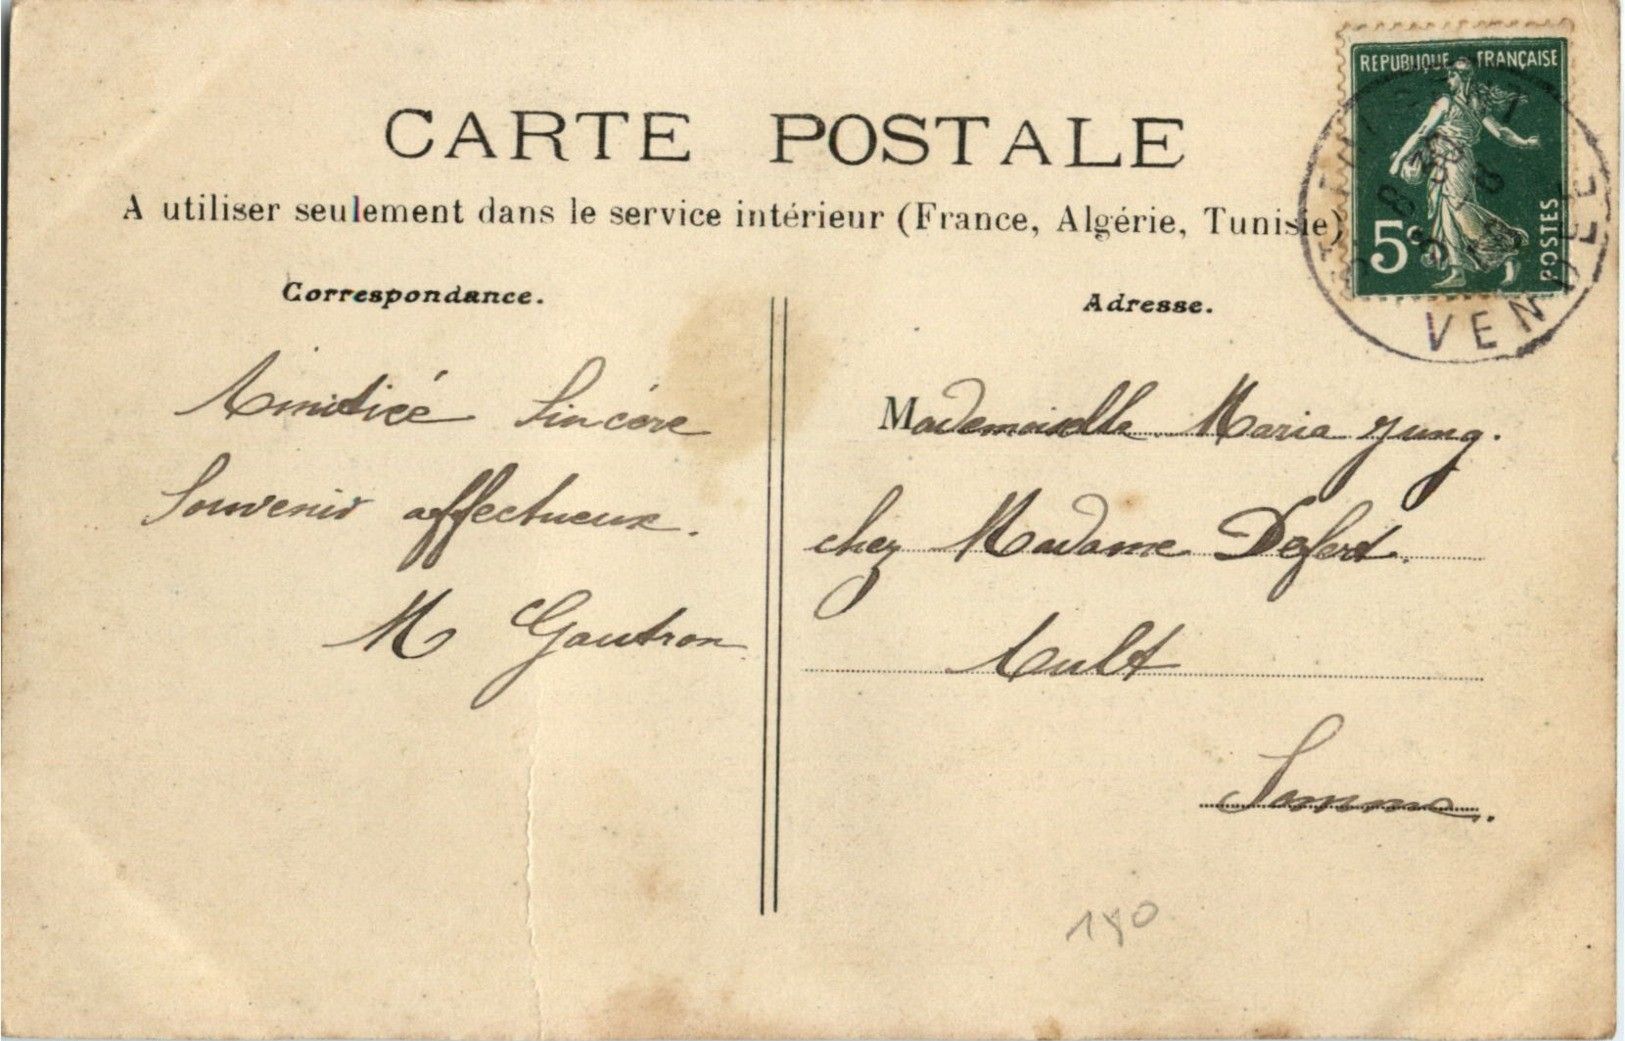 CARTE POSTALE
A utiliser seulement dans le service intérieur (France, Algérie, Tunisie)
REPUBLIQUE FRANÇAISE
5c
POSTES
VENDEE
Correspondance.
Amitiée Sincère
Souvenir affectueux.
M Gautron
Adresse.
Mademoiselle Maria Jung.
chez Madame Defert.
Ault
Somme.